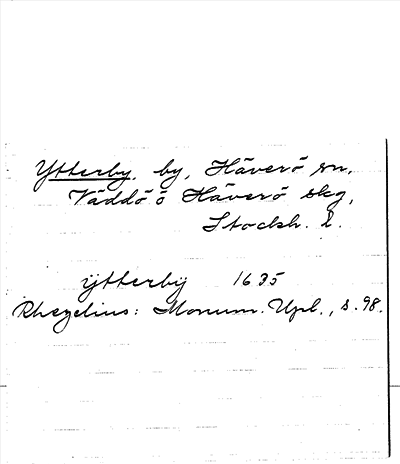 Ytterby, by, Häverö sn,
Väddö o Häverö skg,
Stockh. l.
ÿtterbÿ 1635
Rhezelius: Monum. Upl., s. 98.